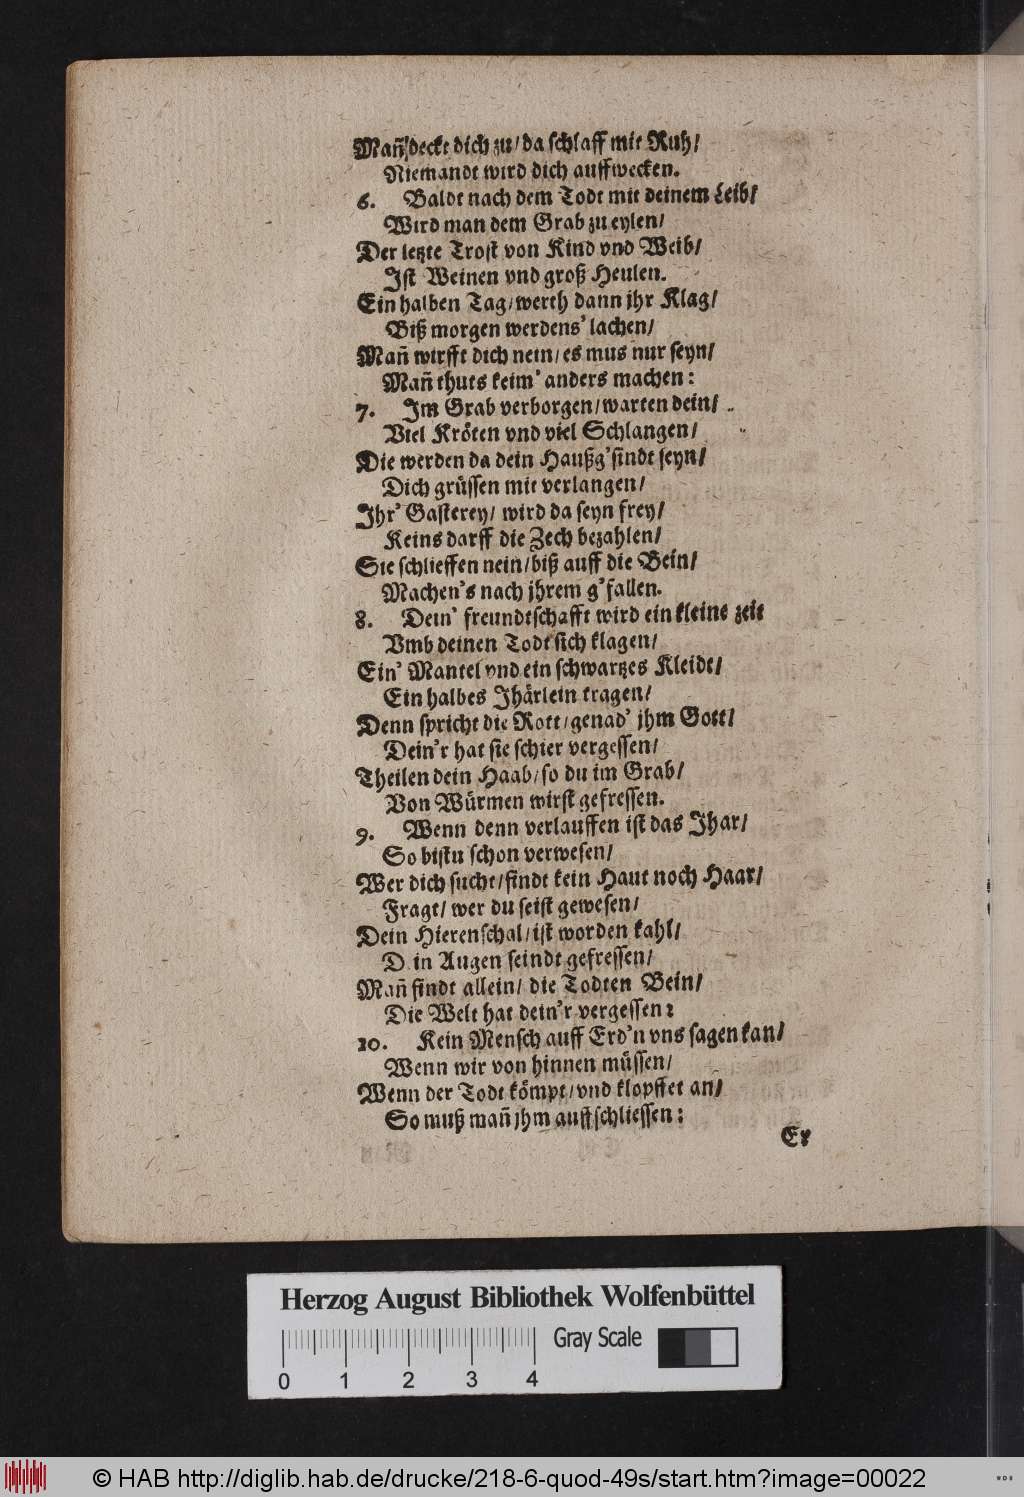 Mañ deckt dich zu/ da schlaff mit Ruh/
Niemandt wird dich auffwecken.
6. Baldt nach dem Todt mit deinem Leib/
Wird man dem Grab zu eylen/
Der letzte Trost von Kind vnd Weib/
Ist Weinen vnd groß Heulen.
Ein halben Tag/ werth dann jhr Klag/
Biß morgen werdens' lachen/
Mañ wirfft dich nein/ es mus nur seyn/
Mañ thuts keim' anders machen:
7. Im Grab verborgen/ warten dein/
Viel Kröten vnd viel Schlangen/
Die werden da dein Haußg'sindt seyn/
Dich grüssen mit verlangen/
Ihr' Gasterey/ wird da seyn frey/
Keins darff die Zech bezahlen/
Sie schlieffen nein/ biß auff die Bein/
Machen's nach jhrem g'fallen.
8. Dein' freundtschafft wird ein kleine zeit
Vmb deinen Todt sich klagen/
Ein' Mantel vnd ein schwartzes Kleidt/
Ein halbes Jhärlein tragen/
Denn spricht die Rott/ genad' jhm Gott/
Dein'r hat sie schier vergessen/
Theilen dein Haab/ so du im Grab/
Von Würmen wirst gefressen.
9. Wenn denn verlauffen ist das Jhar/
So bistu schon verwesen/
Wer dich sucht/ findt kein Haut noch Haar/
Fragt/ wer du seist gewesen/
Dein Hierenschal/ ist worden kahl/
D in Augen seindt gefressen/
Mañ findt allein/ die Todten Bein/
Die Welt hat dein'r vergessen:
10. Kein Mensch auff Erd'n vns sagen kan/
Wenn wir von hinnen müssen/
Wenn der Todt kömpt/ vnd klopffet an/
So muß mañ jhm auffschliessen:
Er
Herzog August Bibliothek Wolfenbüttel
Gray Scale
0 1 2 3 4
© HAB http://diglib.hab.de/drucke/218-6-quod-49s/start.htm?image=00022